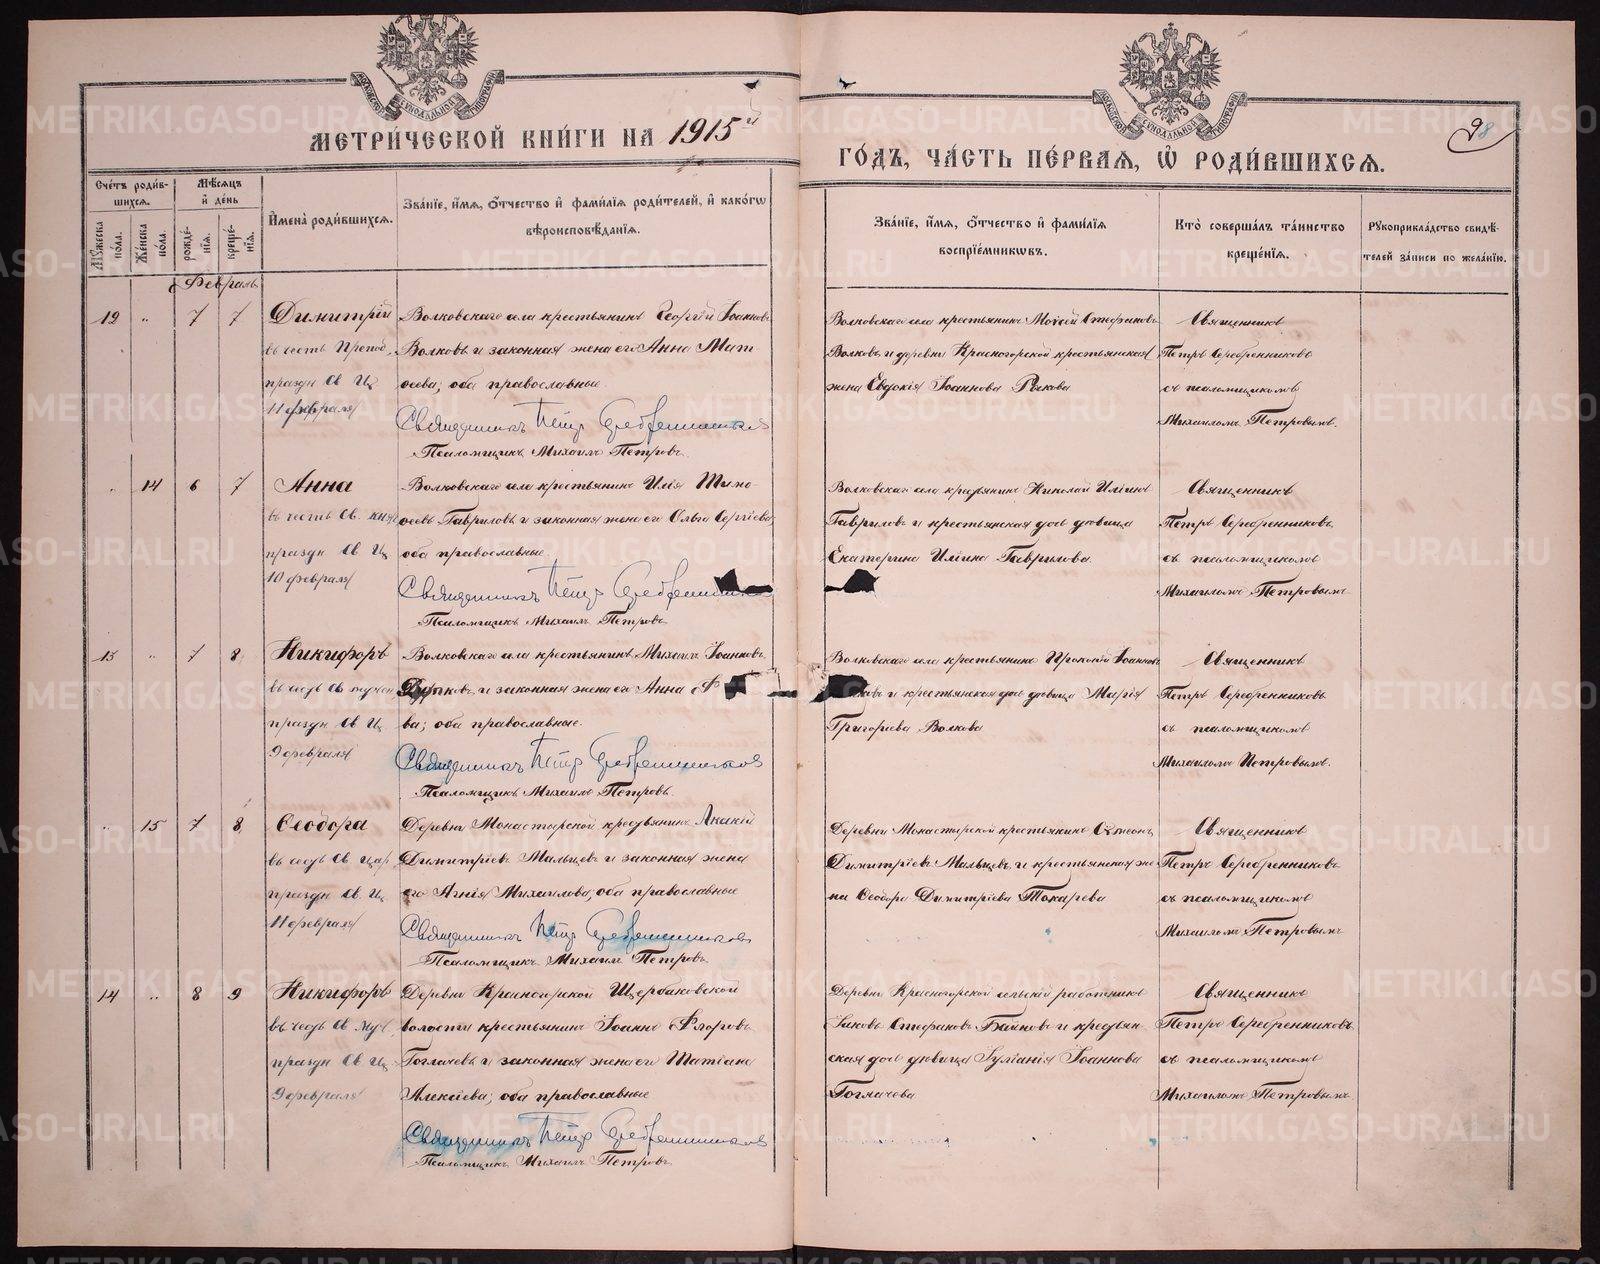 МЕТРИ́ЧЕСКОЙ КНИ́ГИ НА 1915й
ГО́ДЪ, ЧА́СТЬ ПЕ́РВАѦ, Ѡ҆ РОДИ́ВШИХСѦ.
98
Сче́тъ роди́в-
шихсѧ.
Мꙋ́жеска
по́ла.
Же́нска
по́ла.
Мѣ́сѧцъ
и҆ де́нь
рожде́-
нїѧ.
креще́-
нїѧ.
И҆мена̀ роди́вшихсѧ.
Зва́нїе, и҆́мѧ, ѻ҆́тчество и҆ фами́лїѧ роди́телей, и҆ како́гѡ
вѣроисповѣ́данїѧ.
Зва́нїе, и҆́мѧ, ѻ҆́тчество и҆ фами́лїѧ
воспрїе́мникѡвъ.
Кто̀ соверша́лъ та́инство
креще́нїѧ.
Рꙋкоприкла́дство свидѣ́-
телей за́писи по жела́нїю.
Февраль
12 " 7 7
Димитрій
въ честь Препод.
праздн Св Ц
11 февраля
Волковскаго села крестьянинъ Георгій Іоанновъ
Волковъ и законная жена его Анна Мат-
ѳеева; оба православные.
Священникъ Петр Серебренников
Псаломщикъ Михаилъ Петровъ.
Волковскаго села крестьянинъ Моисей Стефановъ
Волковъ и деревни Красногорской крестьянская
жена Евдокія Іоаннова Рыкова
Священникъ
Петръ Серебренниковъ
съ псаломщикомъ
Михаиломъ Петровымъ.
" 14 6 7
Анна
въ честь Св.
праздн Св Ц
10 февраля
Волковскаго села крестьянинъ Илія Тимо-
ѳеевъ Гавриловъ и законная жена его Ольга Сергіева;
оба православные.
Священникъ Петр Серебренников
Псаломщикъ Михаилъ Петровъ.
Волковскаго села крестьянинъ Николай Иліинъ
Гавриловъ и крестьянская дочь дѣвица
Екатерина Иліина Гаврилова.
Священникъ
Петръ Серебренниковъ
съ псаломщикомъ
Михаиломъ Петровымъ
13 " 7 8
Никифоръ
въ честь Св мучен
праздн Св Ц
9 февраля
Волковскаго села крестьянинъ Михаилъ Іоанновъ
и законная жена его Анна Ф
ва; оба православные.
Священникъ Петр Серебренников
Псаломщикъ Михаилъ Петровъ.
Волковскаго села крестьянинъ Прокопій Іоанновъ
и крестьянская дочь дѣвица Марія
Григоріева Волкова
Священникъ
Петръ Серебренниковъ
съ псаломщикомъ
Михаиломъ Петровымъ.
" 15 7 8
Ѳеодора
въ честь Св цар
праздн Св Ц
11 февраля
Деревни Монастырской крестьянинъ Акакій
Димитріевъ Мальцевъ и законная жена
его Агнія Михаилова; оба православные
Священникъ Петр Серебренниковъ
Псаломщикъ Михаилъ Петровъ.
Деревни Монастырской крестьянинъ Сѵмеонъ
Димитріевъ Мальцевъ и крестьянская же-
на Ѳеодора Димитріева Токарева
Священникъ
Петръ Серебренниковъ
съ псаломщикомъ
Михаиломъ Петровымъ
14 " 8 9
Никифоръ
въ честь Св муч
праздн Св Ц
9 февраля
Деревни Красногорской Щербаковской
волости крестьянинъ Іоаннъ Флоровъ
Гогмачевъ и законная жена его Татіана
Алексіева; оба православные
Священникъ Петр Серебренников
Псаломщикъ Михаилъ Петровъ.
Деревни Красногорской сельскій работникъ
Іаковъ Стефановъ Байновъ и крестьян-
ская дочь дѣвица Іуліанія Іоаннова
Гогмачева
Священникъ
Петръ Серебренниковъ
съ псаломщикомъ
Михаиломъ Петровымъ
METRIKI.GASO-URAL.RU